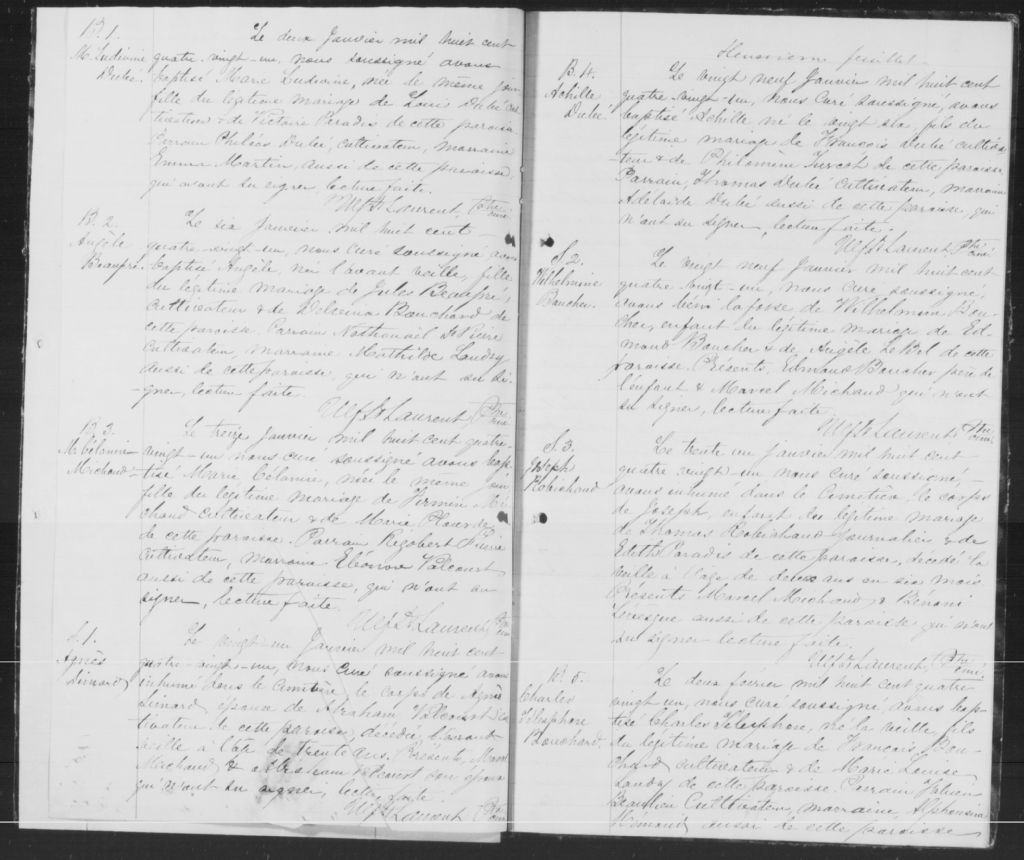 B. 1.
M. Ludivine
Dubé.
Le deux Janvier mil huit cent
quatre vingt-un, nous soussigné avons
baptisé Marie Ludivine, née le même jour
fille du légitime mariage de Louis Dubé cul
tivateur & de Victoire Paradis de cette paroisse
Parrain Philéas Dubé, cultivateur, marraine
Emma Martin, aussi de cette paroisse,
qui n'ont su signer, lecture faite.
St Laurent, Ptre
curé
B. 2
Angèle
Beaupré.
Le six Janvier mil huit cent
quatre-vingt-un, nous curé soussigné avons
baptisé Angèle, née l'avant veille, fille
du légitime mariage de Jules Beaupré,
cultivateur & de Delvina Bouchard de
cette paroisse. Parrain Nathanaël St Pierre
cultivateur, marraine Mathilde Landry
aussi de cette paroisse qui n'ont su si-
gner, lecture faite.
St Laurent Ptre
curé
B. 3.
M. Célanire
Michaud
Le treize Janvier mil huit cent quatre-
vingt-un nous curé soussigné avons bap-
tisé Marie Célanire, née le même jour
fille du légitime mariage de Firmin Mi-
chaud cultivateur & de Marie Plourde
de cette paroisse. Parrain Rigobert Pierre
cultivateur, marraine Eléonore Valcourt
aussi de cette paroisse, qui n'ont su
signer, lecture faite.
St Laurent, Ptre
curé
S. 1.
Agnès
Simard
Le vingt-un Janvier mil huit cent
quatre-vingt-un, nous curé soussigné avons
inhumé dans le Cimetière, le corps de Agnès
Simard, épouse de Abraham Valcourt cul
tivateur de cette paroisse, décédée l'avant
veille à l'âge de trente ans. Présents, Marcel
Michaud & Abraham Valcourt son époux
qui n'ont su signer, lecture faite.
St Laurent Ptre
feuillet.
B. 4.
Achille
Dubé.
Le vingt neuf Janvier mil huit cent
quatre vingt-un, nous Curé soussigné, avons
baptisé Achille né le vingt six, fils du
légitime mariage de François Dubé cultiva-
teur & de Philomène Turcot de cette paroisse
Parrain, Thomas Dubé cultivateur, marraine
Adélaïde Dubé aussi de cette paroisse, qui
n'ont su signer, lecture faite.
St Laurent, Ptre
curé
S. 2.
Wilhelmine
Boucher.
Le vingt neuf Janvier mil huit cent
quatre vingt-un, nous Curé, soussigné,
avons béni la fosse de Wilhelmine Bou-
cher, enfant du légitime mariage de Ed-
mond Boucher & de Angèle LeBel de cette
paroisse. Présents, Edmond Boucher père de
l'enfant & Marcel Michaud qui n'ont
su signer, lecture faite.
St Laurent Ptre
curé
S. 3.
Joseph
Robichaud
Le trente un Janvier mil huit cent
quatre vingt un nous Curé soussigné,
avons inhumé dans le Cimetière le corps
de Joseph, enfant du légitime mariage
de Thomas Robichaud journalier & de
Edith Paradis de cette paroisse, décédé la
veille à l'âge de deux ans en six mois
Présents Marcel Michaud & Bénoni
Lévesque aussi de cette paroisse qui n'ont
su signer lecture faite.
St Laurent, Ptre
curé
B. 5.
Charles
Télesphore
Bouchard.
Le deux fevrier mil huit cent quatre-
vingt un, nous curé soussigné, avons bap-
tisé Charles Télesphore, né la veille, fils
du légitime mariage de François Bou-
chard cultivateur & de Marie Louise
Landry de cette paroisse. Parrain Fabien
Beaulieu Cultivateur, marraine Alphonsine
aussi de cette paroisse